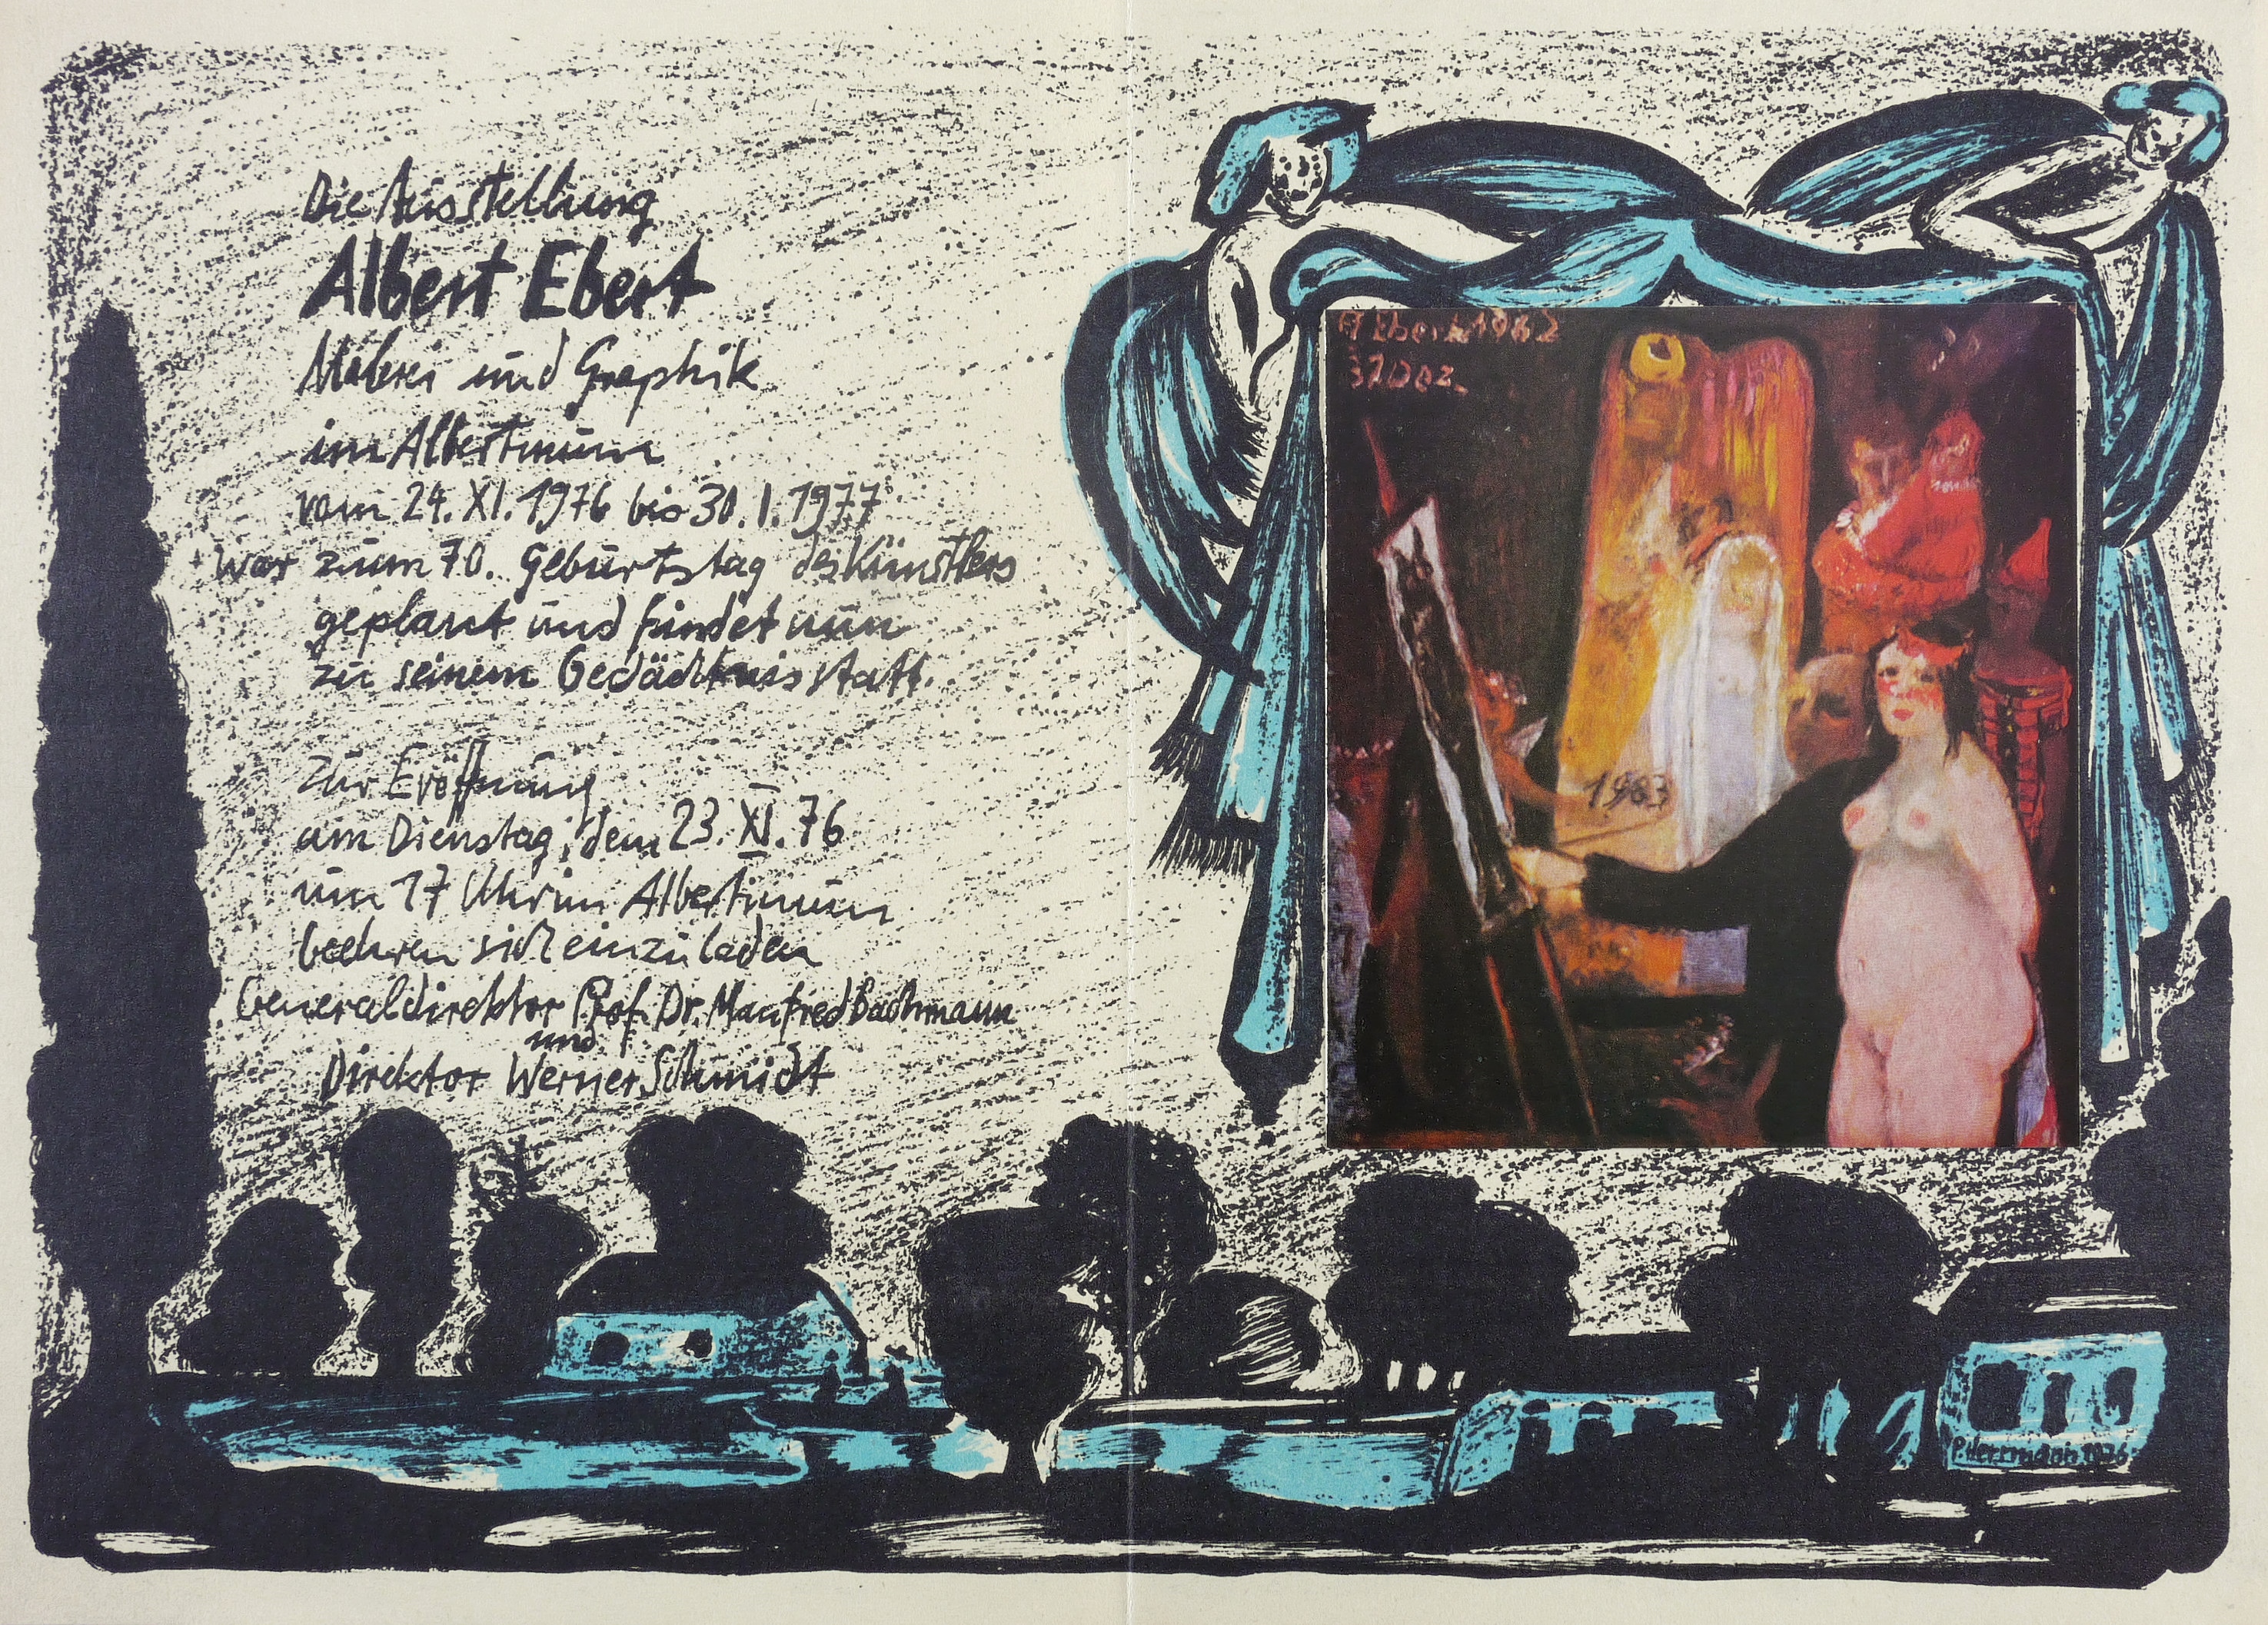 Die Ausstellung
Albert Ebert
Malerei und Graphik
im Albertinum
vom 24. XI. 1976 bis 30. I. 1977
war zum 70. Geburtstag des Künstlers
geplant und findet nun
zu seinem Gedächtnis statt.
Zur Eröffnung
am Dienstag, dem 23. XI. 76
um 17 Uhr im Albertinum
beehren sich einzuladen
Generaldirektor Prof. Dr. Manfred Bachmann
und
Direktor Werner Schmidt
A Ebert 1962
31 Dez.
1963
P. Herrmann 1976